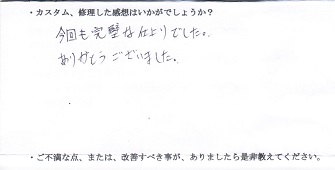 ・カスタム、修理した感想はいかがでしょうか？
今回も完璧な仕上りでした。
ありがとうございました。
・ご不満な点、または、改善すべき事が、ありましたら是非教えてください。